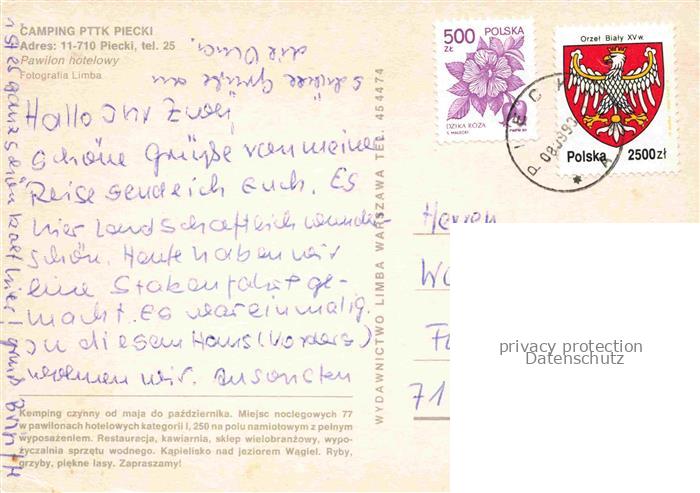 CAMPING PTTK PIECKI
Adres: 11-710 Piecki, tel. 25
Pawilon hotelowy
Fotografia Limba
Hallo Ihr Zwei,
schöne Grüße von meiner
Reise sende ich Euch. Es
hier landschaftlich wunder-
schön. Heute haben wir
eine Stakenfahrt ge-
macht. Es war einmalig.
In diesem Haus (Vorders)
wohnen wir. Ansonsten
ist es ganz schön kalt hier
Kemping czynny od maja do października. Miejsc noclegowych 77
w pawilonach hotelowych kategorii I, 250 na polu namiotowym z pełnym
wyposażeniem. Restauracja, kawiarnia, sklep wielobranżowy, wypo-
życzalnia sprzętu wodnego. Kąpielisko nad jeziorem Wągiel. Ryby,
grzyby, piękne lasy. Zapraszamy!
WYDAWNICTWO LIMBA WARSZAWA TEL. 454474
500
ZŁ
POLSKA
DZIKA RÓŻA
Orzeł Biały XV w.
Polska 2500 zł
PIECKI
Herren
71
privacy protection
Datenschutz